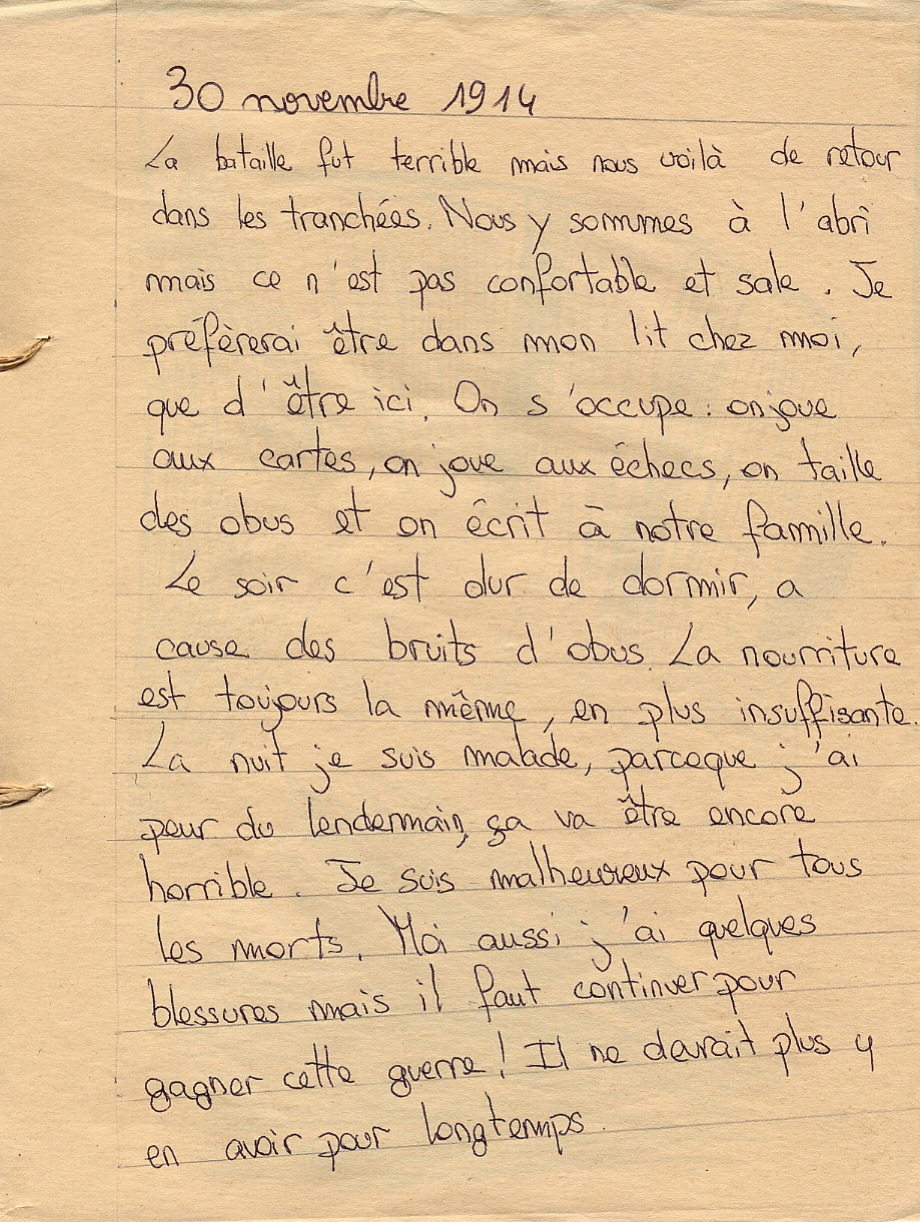 30 novembre 1914
La bataille fut terrible mais nous voilà de retour
dans les tranchées. Nous y sommes à l'abri
mais ce n'est pas confortable et sale. Je
préfèrerai être dans mon lit chez moi,
que d'être ici. On s'occupe : on joue
aux cartes, on joue aux échecs, on taille
des obus et on écrit à notre famille.
Le soir c'est dur de dormir, a
cause des bruits d'obus. La nourriture
est toujours la même, en plus insuffisante.
La nuit je suis malade, parceque j'ai
peur du lendemain, ça va être encore
horrible. Je suis malheureux pour tous
les morts. Moi aussi j'ai quelques
blessures mais il faut continuer pour
gagner cette guerre ! Il ne devrait plus y
en avoir pour longtemps.